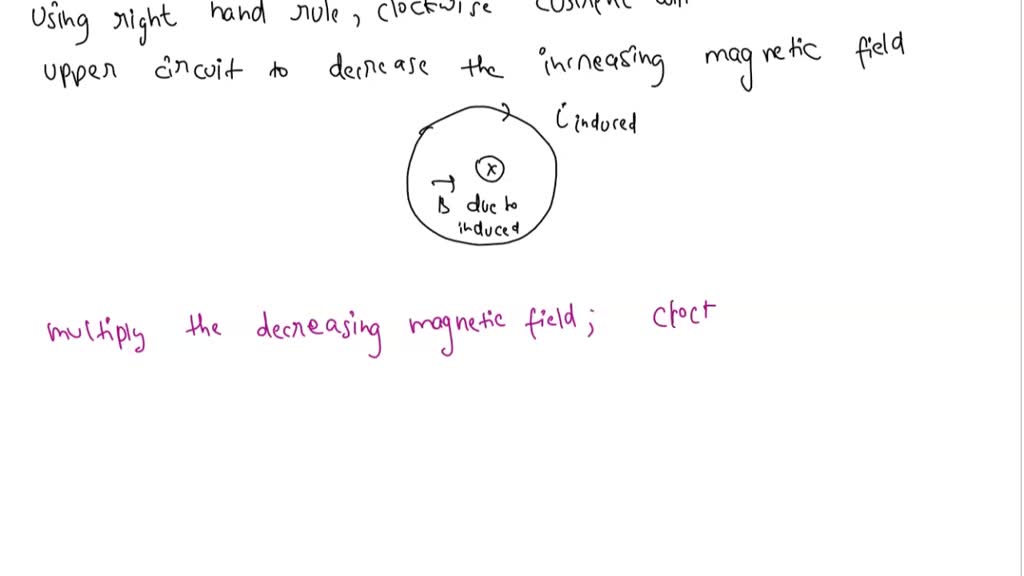 Using right hand rule, clockwise
upper circuit to decrease the increasing magnetic field
i induced
x
B due to
induced
multiply the decreasing magnetic field; cloct